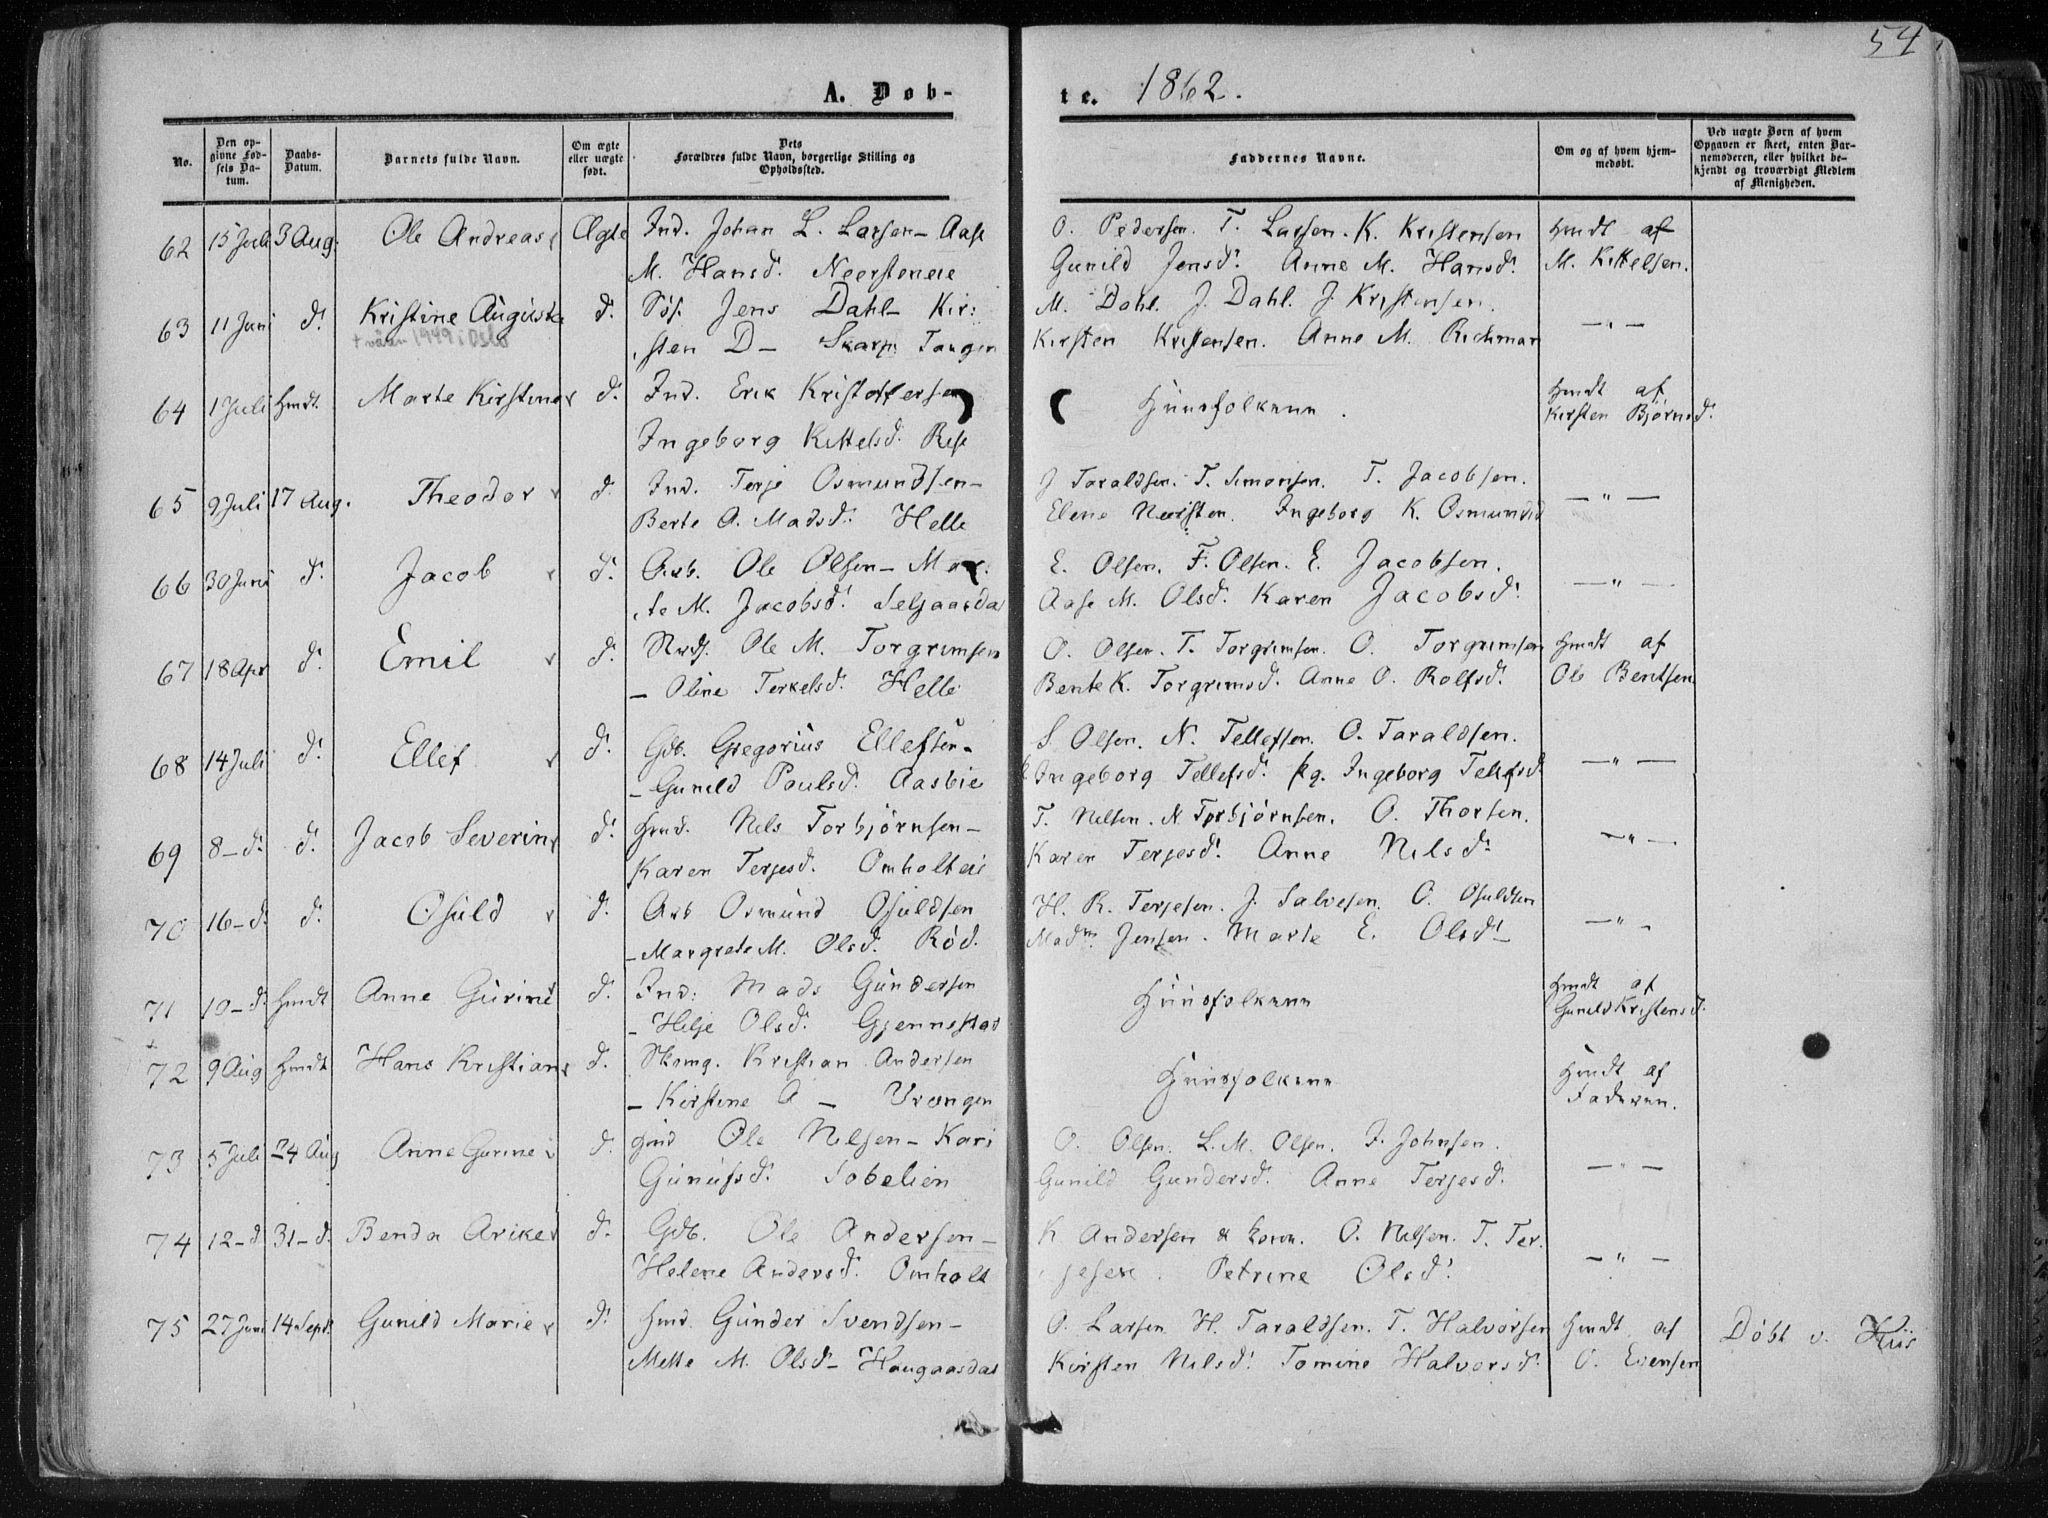 54
A. Døb-
te. 1862.
No.
Den op-
givne Fød-
sels Da-
tum.
Daabs-
Datum.
Barnets fulde Navn.
Om ægte
eller uægte
født.
Dets
Forældres fulde Navn, borgerlige Stilling og
Opholdssted.
Faddernes Navne.
Om og af hvem hjem-
medøbt.
Ved uægte Børn af hvem
Opgaven er skeet, enten Bar-
nemoderen, eller hvilket be-
kjendt og troværdigt Medlem
af Menigheden.
62 15 Juli 3 Aug. Ole Andreas Ægte Ind. Johan L. Larsen – Aase O. Pedersen. T. Larsen. K. Kristensen Hmdt af
M. Hansd. Neersteneie Gunild Jensd. Anne M. Hansd. M. Kittelsen.
63 11 Juni d. Kristine Auguste d. Søf. Jens Dahl – Kir: M. Dahl. J. Dahl. J Kristensen. – " –
sten D – Skarp. Tangen Kirsten Kristensen. Anne M. Richman
64 1 Juli Hmdt. Marte Kirstine d. Ind. Erik Kristoffersen Huusfolkene. Hmdt af
Ingeborg Kittelsd. Rise Kirsten Bjørnsd.
65 9 Juli 17 Aug. Theodor d. Ind. Terje Osmundsen – J Taraldsen. T. Simonsen. T. Jacobsen. – " –
Berte A. Madsd. Helle Elene Neersten. Ingeborg K. Osmundsd
66 30 Juni d. Jacob d. Arb. Ole Olsen – Mar: E. Olsen. F. Olsen. E. Jacobsen. – " –
te M. Jacobsd. Seljaasdal Aase M. Olsd. Karen Jacobsd.
67 18 Apr d. Emil d. Ole M. Torgrimsen O. Olsen. T. Torgrimsen. O. Torgrimsen Hmdt af
– Oline Terkelsd. Helle Bente K. Torgrimsd. Anne O. Rolfsd. Ole Bentsen.
68 14 Juli d. Ellef d. Gdb. Gregorius Ellefsen – S. Olsen. N. Tellefsen. O. Taraldsen. – " –
– Gunild Paulsd. Aasbie Ingeborg Tellefsd. pg. Ingeborg Tellefsd
69 8 – d. d. Jacob Severin d. Hmd. Nils Torbjørnsen – T. Nilsen. N. Torbjørnsen. O. Thorsen. – " –
Karen Terjesd. Omholteie Karen Terjesd. Anne Nilsd.
70 16 – d. d. Osuld d. Arb Osmund Osuldsen H. R. Terjesen. J. Salvesen. O. Osuldsen – " –
– Margrete M. Olsd. Röd. Madm Jensen. Marie E. Olsd –
71 10 – d. Hmdt Anne Gurine d. Ind: Mads Gundersen Huusfolkene Hmdt af
– Helje Olsd. Gjennestad Gunild Kristensd.
72 9 Aug Hmdt Hans Kristian d. Skomg. Kristian Andersen Huusfolkene Hmdt af
– Kirstine A – Vrengen Faderen.
73 5 Juli 24 Aug Anne Gurine d. Hmd Ole Nilsen – Kari O. Olsen. L. M. Olsen. J. Johnsen. – " –
Gunufsd. Sobelien Gunild Gundersd. Anne Terjesd.
74 12 – d 31 – d. Benda Arike d. Gdb. Ole Andersen – K Andersen & Kone. O. Nilsen. T. Ter: – " –
Helene Andersd. Omholt jesen. Petrine Olsd.
75 27 Juni 14 Sept. Gunild Marie d. Hmd. Gunder Svendsen – O. Larsen H. Taraldsen. T. Halvorsen Hmdt af Döbt v. Huis
Mette M. Olsd – Haugaasdal Kirsten Nilsd. Tomine Halvorsd. O. Evensen